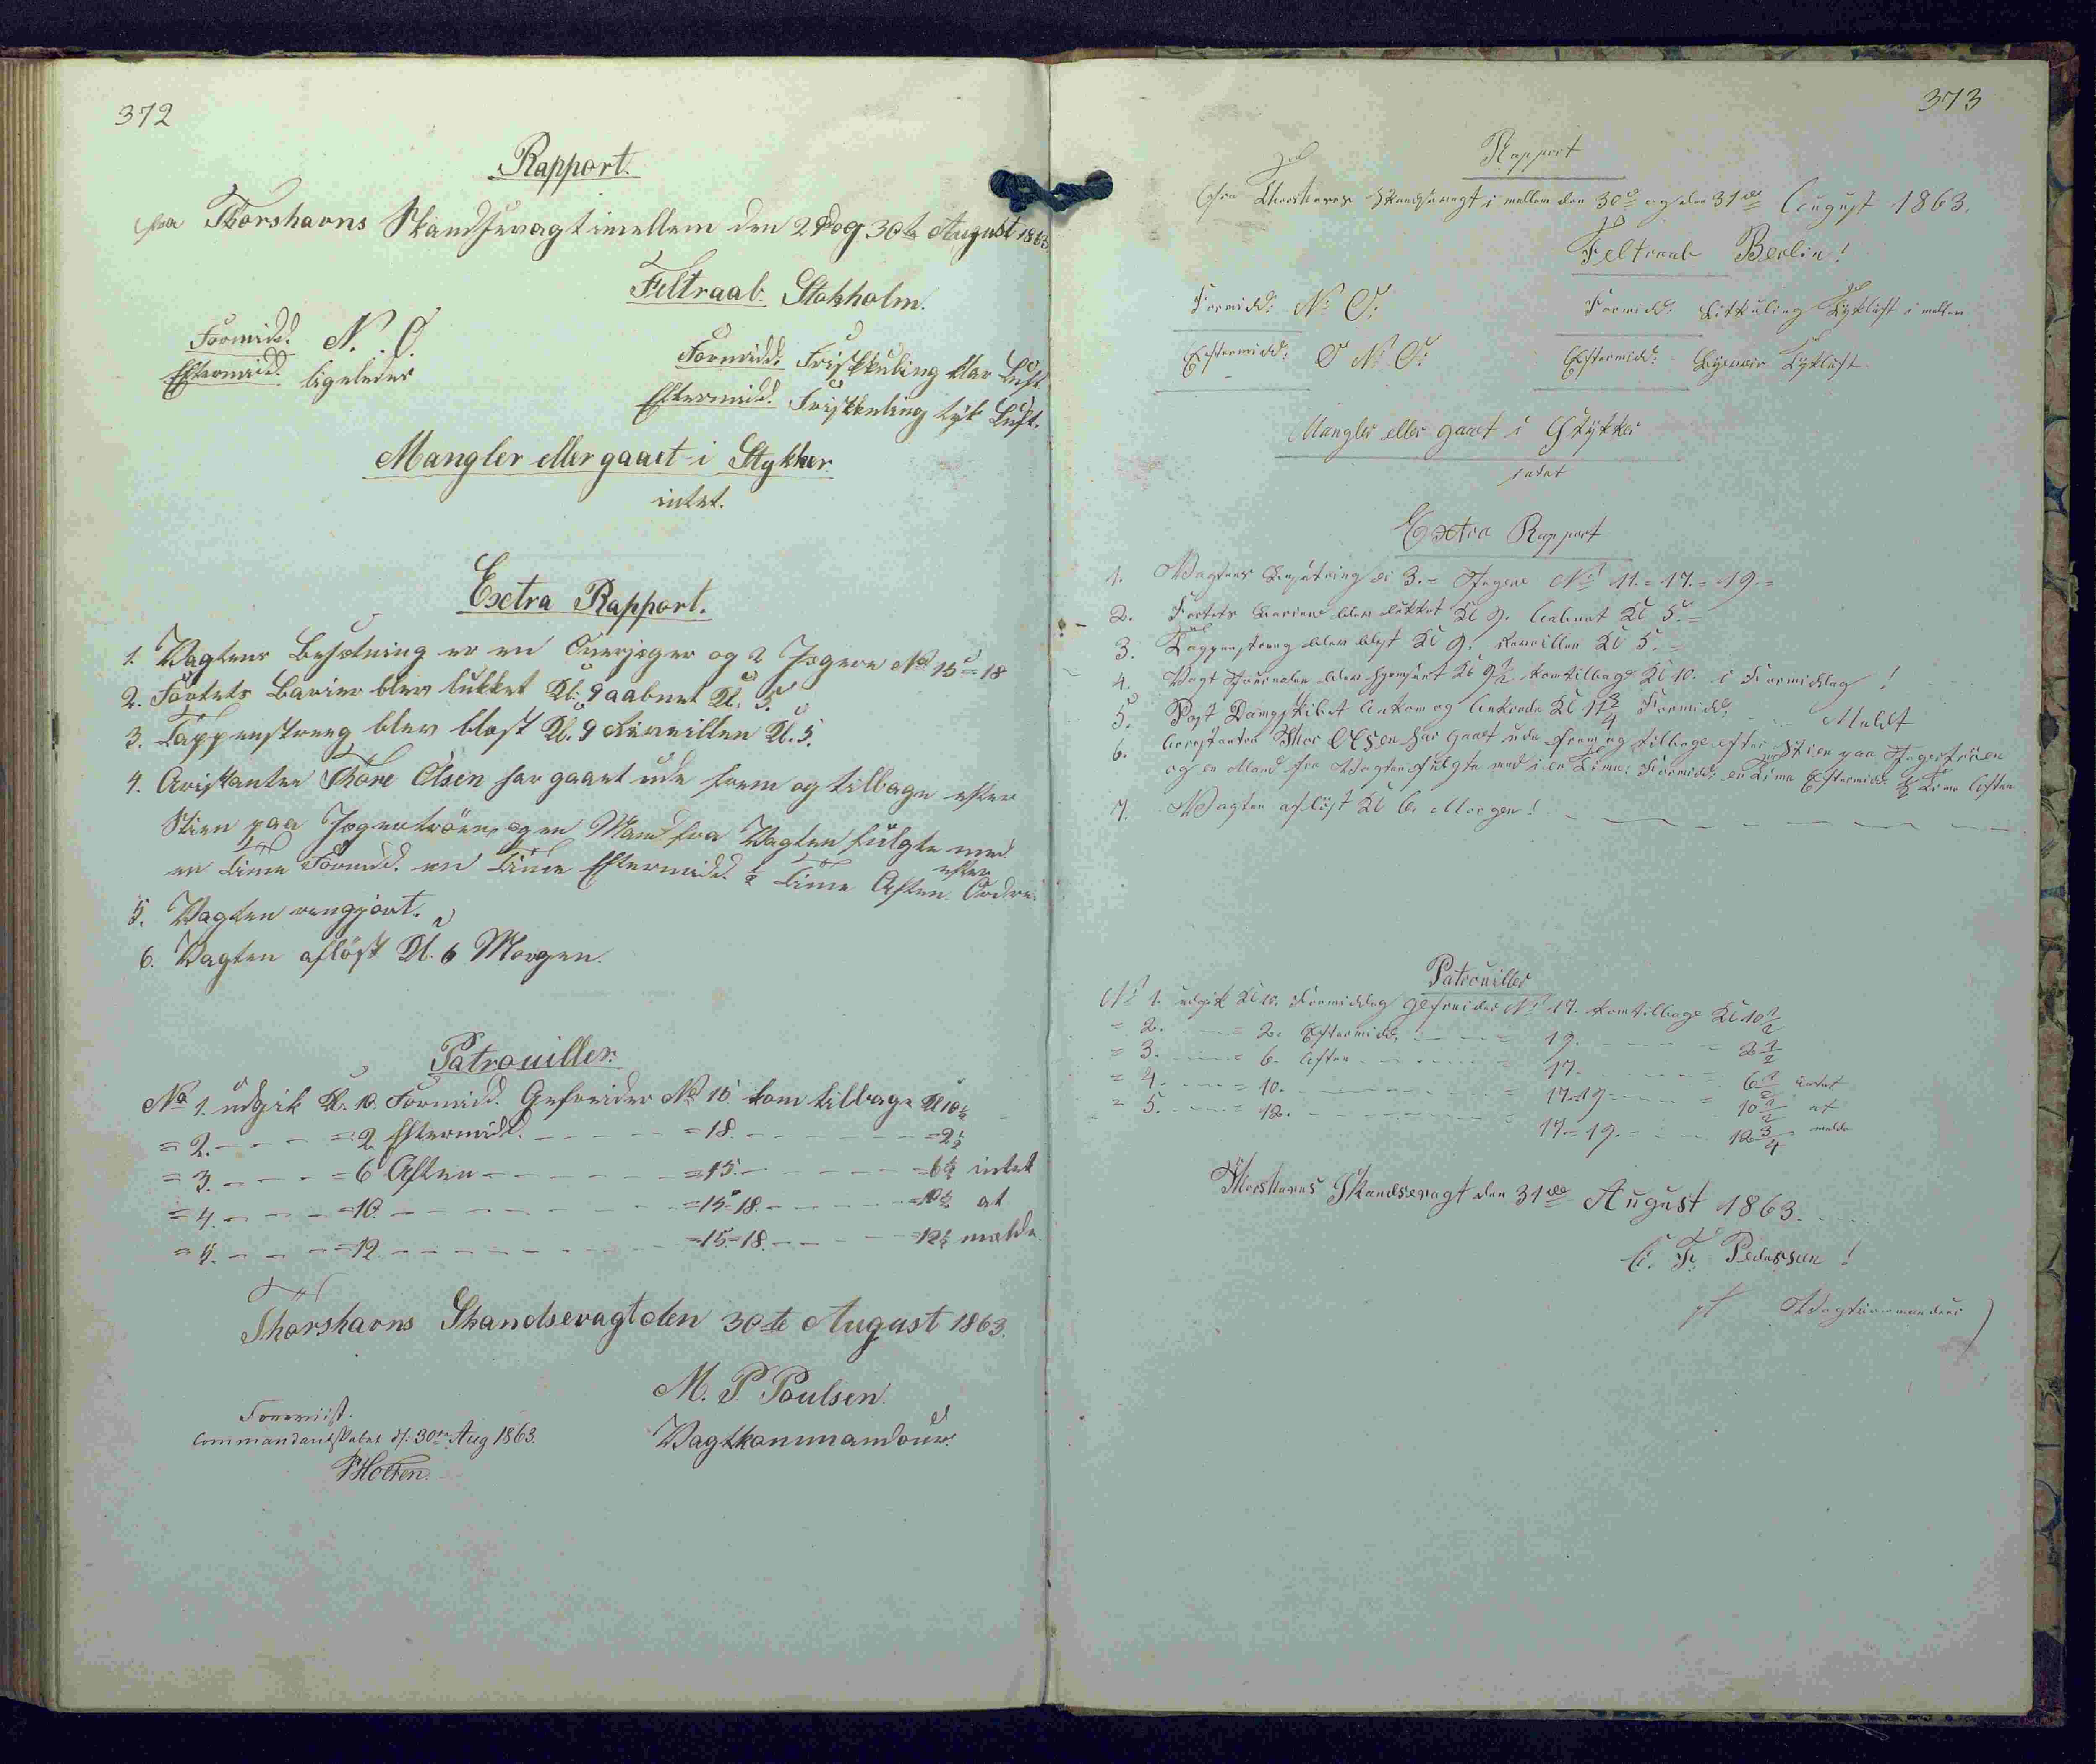 372
Rapport.
fra Thorshavns Skandsevagt imellem den 29 og 30te August 1863.
Feltraab. Stokholm.
Formidd. N. O.
Eftermidd. ligeledes
Formidd. Friskkuling klar Luft
Eftermidd. Friskkuling tyk Luft.
Mangler eller gaaet i Stykker
intet.
Exstra Rapport.
1. Vagtens Besætning er en Overjæger og 2 Jægere No 15 = 18
2. Fortets Barier blev lukket Kl. 9 aabnet Kl. 5.
3. Tappenstreng blev blæst Kl. 9 Reveillen Kl. 5.
4. Aristanten Thore Olsen har gaaet ude frem og tilbage efter
Stien paa Jagertröen og en Mand fra Vagten fulgte med
en Time Formidd. en Time Eftermidd. ½ Time Aften. efter Ordre.
5. Vagten rengjort.
6. Vagten aflöst Kl. 6 Morgen.
Patrouiller.
No 1. udgik Kl. 10 Formidd. Gefreider No 15 kom tilbage Kl 10½
= 2. - - - = 2 Eftermidd. - - - - = 18. - - - - = 2½
= 3. - - - = 6 Aften - - - - = 15. - - - - = 6½ intet
= 4. - - - = 10. - - - - = 15 = 18. - - - - = 10½ at
= 5. - - - = 12. - - - - = 15 = 18. - - - - = 12½ melde.
Thorshavns Skandsevagt den 30te August 1863.
M. P. Poulsen.
Vagtkommandeur.
Foreviist.
Commandantskabet d/: 30te Aug 1863.
HHolten.
373
Rapport
fra Thorshavns Skandsevagt i mellem den 30te og den 31te August 1863.
Feltraab Berlin!
Formidd: N: O:
Formidd: Litkuling Tykluft i mellem
Eftermidd: O N: O:
Eftermidd: Tykluft.
Mangler eller gaaet i Stykker
intet
Exstra Rapport
1. Vagtens Besætning er 3.= Jægere No 11.= 17.= 19.=
2. Fortets Bariere blev lukket Kl 9. Aabnet Kl 5.=
3. Tappenstreng blev blæst Kl 9. Reveillen Kl 5.=
4. Vagt Journalen blev Kl 9½ kom tilbage Kl 10. i Formiddag!
5. Post Dampskibet Ankom og Ankrede Kl 11¾ Formidd: Meldt
6. Arrestanten Thor Olsen har gaaet ude frem og tilbage efter Stien paa Jagertröen
og en Mand fra Vagten fulgte med i en Time: Formidd: en Time Eftermidd: ½ Time Aften
7. Vagten aflöst Kl 6 Morgen!
Patrouiller
No 1. udgik Kl 10. Formiddag Gefreider No 17. kom tilbage Kl 10½
= 2. - - = 2. Eftermidd. - - = 19. - - = 2½
= 3. - - = 6. Aften - - = 17. - - = 6½ intet
= 4. - - = 10. - - = 17=19. - - = 10½ at
= 5. - - = 12. - - = 17.=19.= - - 12¾ melde
Thorshavns Skandsevagt den 31te August 1863.
C. F. Pedersen!
pt Vagtkommandeur